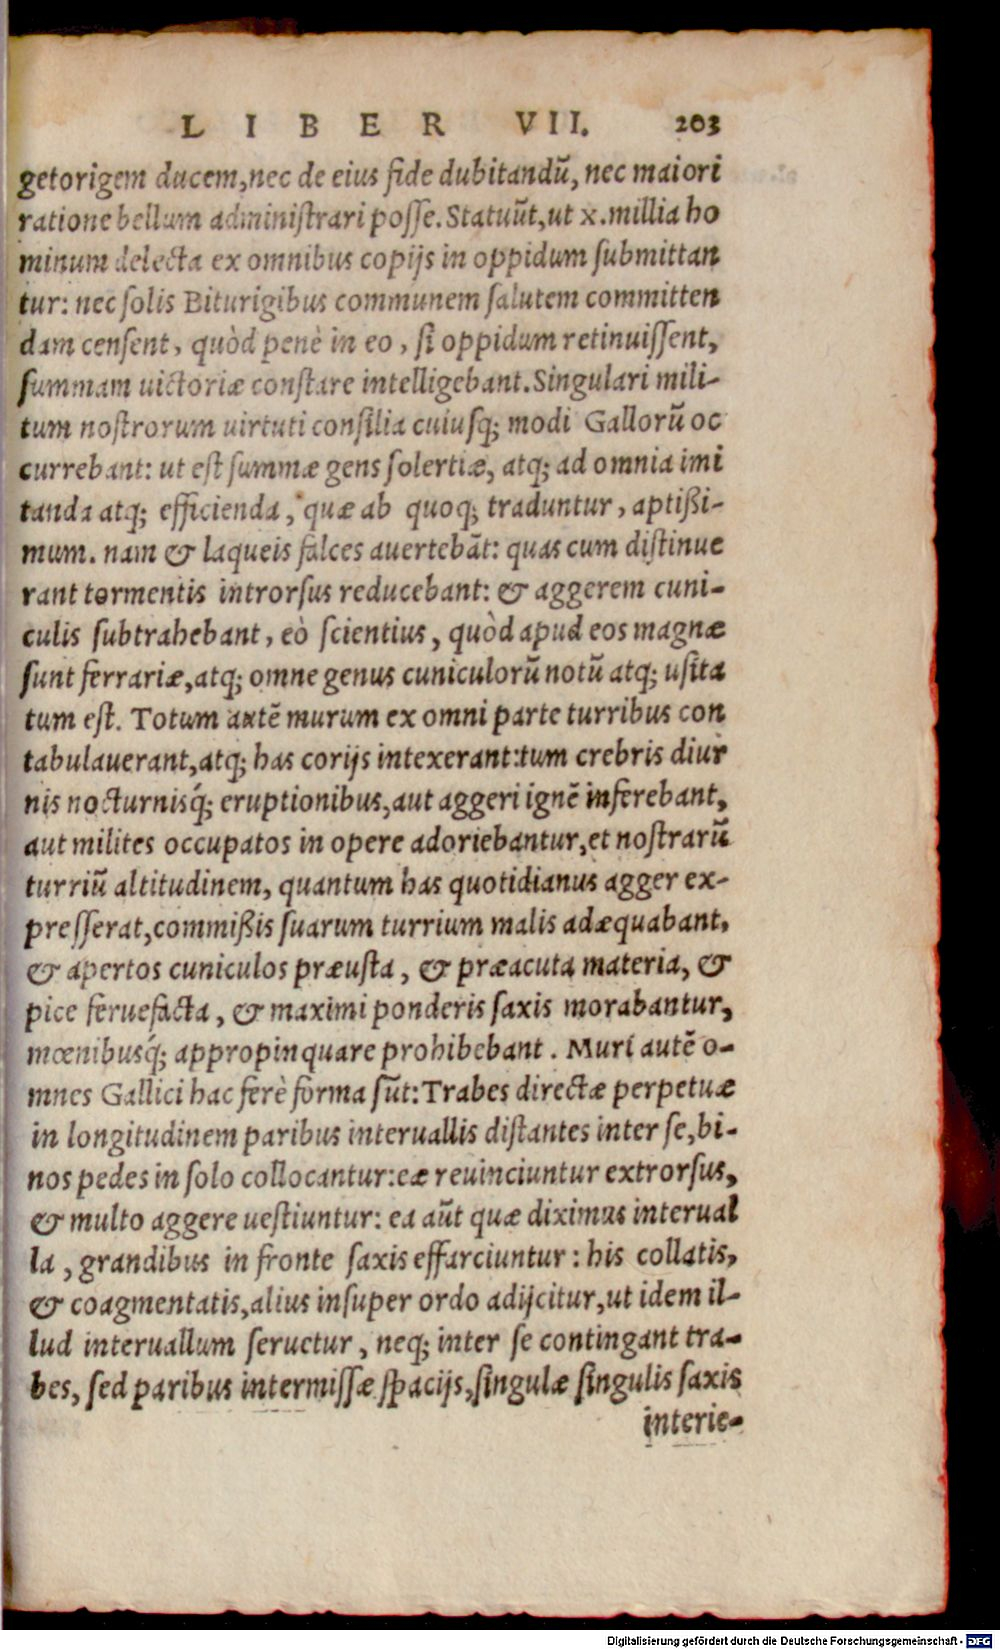 LIBER VII. 203
getorigem ducem, nec de eius fide dubitandũ, nec maiori
ratione bellum administrari posse. Statuũt, ut x. millia ho
minum delecta ex omnibus copijs in oppidum submittan
tur: nec solis Biturigibus communem salutem committen
dam censent, quòd penè in eo, si oppidum retinuissent,
summam uictoriæ constare intelligebant. Singulari mili-
tum nostrorum uirtuti consilia cuiusq; modi Gallorũ oc
currebant: ut est summæ gens solertiæ, atq; ad omnia imi
tanda atq; efficienda, quæ ab quoq; traduntur, aptißi-
mum. nam & laqueis falces auertebãt: quas cum distinue
rant tormentis introrsus reducebant: & aggerem cuni-
culis subtrahebant, eò scientius, quòd apud eos magnæ
sunt ferrariæ, atq; omne genus cuniculorũ notũ atq; usita
tum est. Totum autẽ murum ex omni parte turribus con
tabulauerant, atq; has corijs intexerant: tum crebris diur
nis nocturnisq́; eruptionibus, aut aggeri ignẽ inferebant,
aut milites occupatos in opere adoriebantur, et nostrarũ
turriũ altitudinem, quantum has quotidianus agger ex-
presserat, commißis suarum turrium malis adæquabant,
& apertos cuniculos præusta, & præacuta materia, &
pice feruefacta, & maximi ponderis saxis morabantur,
mœnibusq́; appropinquare prohibebant. Muri autẽ o-
mnes Gallici hac ferè forma sũt: Trabes directæ perpetuæ
in longitudinem paribus interuallis distantes inter se, bi-
nos pedes in solo collocantur: eæ reuinciuntur extrorsus,
& multo aggere uestiuntur: ea aũt quæ diximus interual
la, grandibus in fronte saxis effarciuntur: his collatis,
& coagmentatis, alius insuper ordo adijcitur, ut idem il-
lud interuallum seruetur, neq; inter se contingant tra-
bes, sed paribus intermissæ spacijs, singulæ singulis saxis
interie-
Digitalisierung gefördert durch die Deutsche Forschungsgemeinschaft - DFG